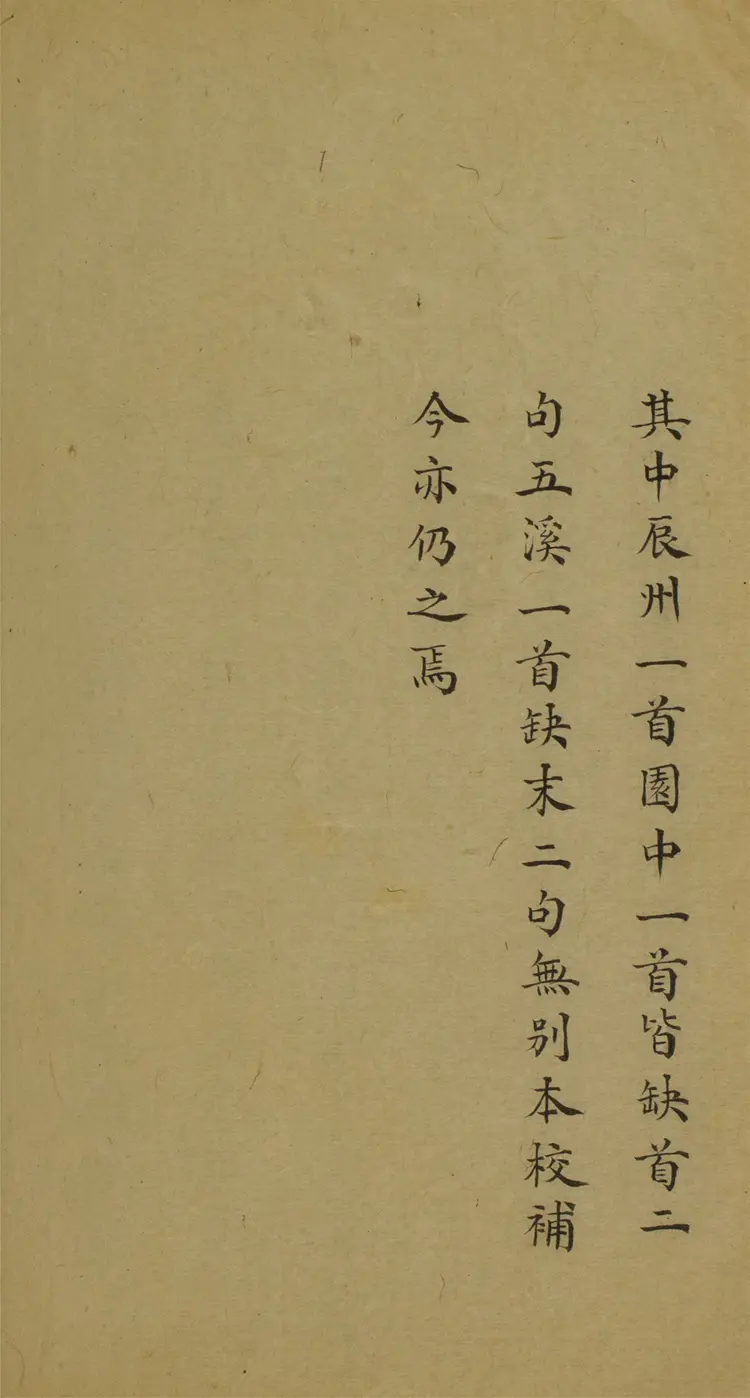 其中辰州一首園中一首皆缺首二
句五溪一首缺末二句無别本校補
今亦仍之焉